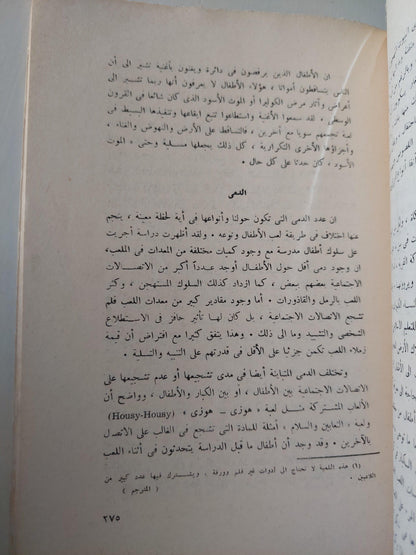 ان الأطفال الذين يرقصون فى دائرة ويغنون بأغنية تشير الى أن
الناس يتساقطون أمواتا ، هؤلاء الأطفال لا يعرفون أنها ربما تشير الى
أعراض وآثار مرض الكوليرا أو الموت الأسود الذى كان شائعا فى القرون
الوسطى ، لقد سمعوا الأغنية واستطاعوا تتبع ايقاعها وتنفيذها البسيط فى
لعبة تجمعهم سويا مع آخرين ، فالتساقط على الأرض والنهوض والغناء ،
وأجزاؤها الأخرى التكرارية ، كل ذلك يجعلها مسلية وحتى « الموت
الأسود ، كان حدثا على كل حال .
الدمى
ان عدد الدمى التى تكون حولنا وأنواعها فى أية لحظة معينة ، ينجم
عنها اختلاف فى طريقة لعب الأطفال ونوعه . ولقد أظهرت دراسة أجريت
على سلوك أطفال مدرسة مع وجود كميات مختلفة من المعدات فى الملعب،
ان وجود دمى أقل حول الأطفال أوجد عددا أكبر من الاتصالات
الاجتماعية بعضهم ببعض ، كما ازداد كذلك السلوك المستهجن ، وكثر
اللعب بالرمل والقاذورات . أما وجود مقادير كبير من معدات اللعب فلم
تشجع الاتصالات الاجتماعية ، بل كان لها تأثير حافز فى الاستطلاع
الشخصى والتشييد وما الى ذلك . وهذا يتفق كثيرا مع افتراض أن قيمة
زملاء اللعب تكمن جزئيا على الأقل فى قدرتهم على التنبيه والتسلية .
وتختلف الدمى المتباينة أيضا فى مدى تشجيعها أو عدم تشجيعها على
الاتصالات الاجتماعية بين الأطفال ، أو بين الكبار والأطفال ، وواضح أن
الألعاب المشتركة مثل لعبة « هوزى ــ هوزى » (Housy-Housy)
ولعبة ، الثعابين والسلام ، أمثلة للمادة التى تشجع فى الغالب على الاتصال
بالآخرين . وقد وجد أن أطفال ما قبل الدراسة يتحدثون فى أثناء اللعب
(١) هذه اللعبة لا تحتاج الى أدوات غير قلم وورقة ، ويشترك فيها عدد كبير من
اللاعبين .
( المترجم )
٢٧٥